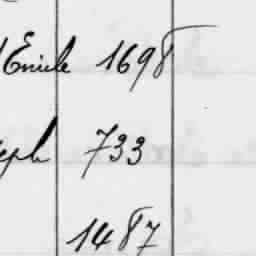 Emile 1698
eph 733
1487